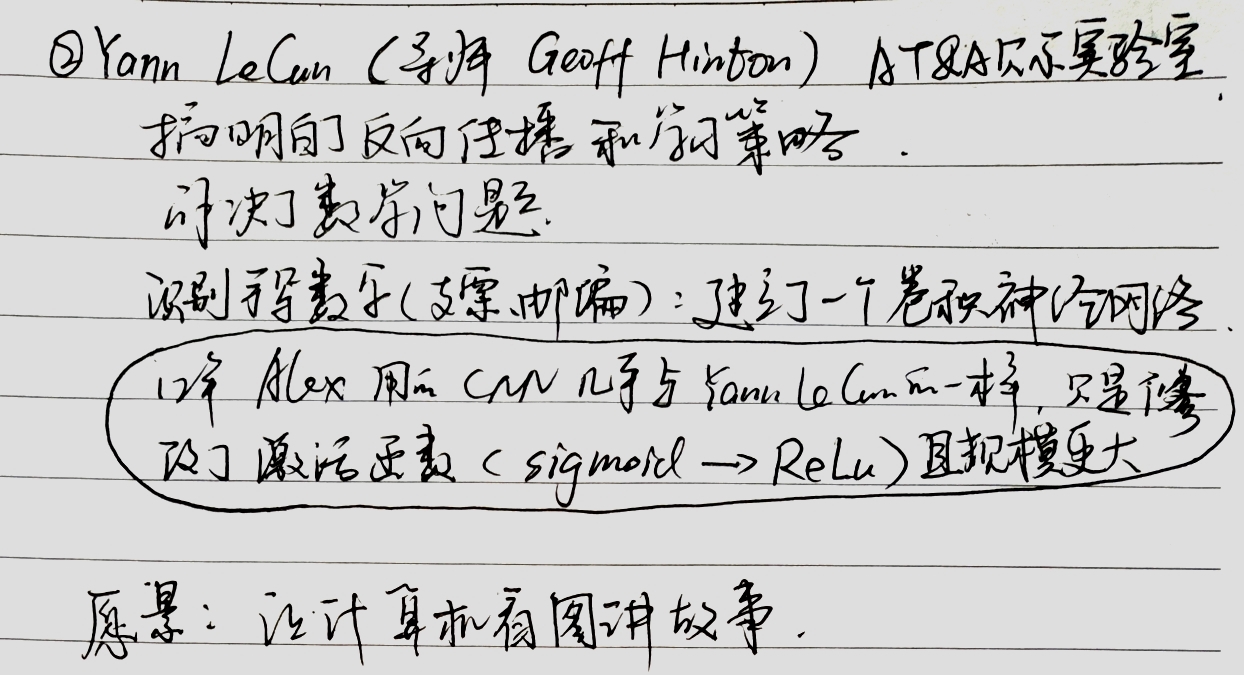 ②Yann LeCun（导师 Geoff Hinton） AT&A贝尔实验室.
搞明白了反向传播和学习策略.
解决了数学问题.
识别手写数字(支票、邮编)：建立了一个卷积神经网络.
12年 Alex 用的 CNN 几乎与 Yann LeCun 的一样, 只是修
改了激活函数（sigmoid → ReLu）且规模更大
愿景：让计算机看图讲故事.